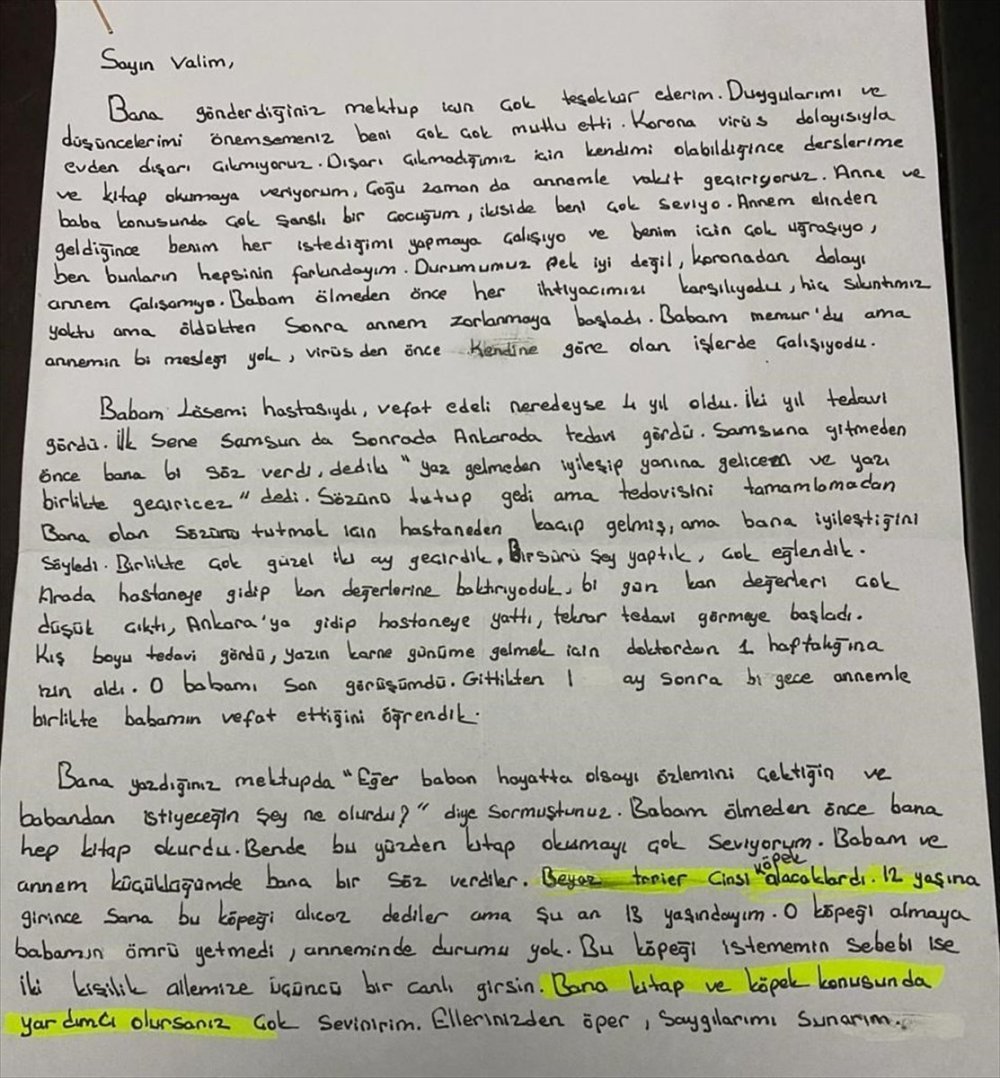 Sayın Valim,
Bana gönderdiğiniz mektup için çok teşekkür ederim. Duygularımı ve
düşüncelerimi önemsemeniz beni çok çok mutlu etti. Korona virüs dolayısıyla
evden dışarı çıkmıyoruz. Dışarı çıkmadığımız için kendimi olabildiğince derslerime
ve kitap okumaya veriyorum, Çoğu zaman da annemle vakit geçiriyoruz. Anne ve
baba konusunda çok şanslı bir çocuğum, ikiside beni çok seviyo. Annem elinden
geldiğince benim her istediğimi yapmaya çalışıyo ve benim için çok uğraşıyo,
ben bunların hepsinin farkındayım. Durumumuz pek iyi değil, koronadan dolayı
annem çalışamıyo. Babam ölmeden önce her ihtiyacımızı karşılıyodu, hiç sıkıntımız
yoktu ama öldükten sonra annem zorlanmaya başladı. Babam memur'du ama
annemin bi mesleği yok, virüsden önce kendine göre olan işlerde çalışıyodu.
Babam Lösemi hastasıydı, vefat edeli neredeyse 4 yıl oldu. İki yıl tedavi
gördü. İlk sene Samsun da sonrada Ankarada tedavi gördü. Samsuna gitmeden
önce bana bi söz verdi, dediki "yaz gelmeden iyileşip yanına gelicem ve yazı
birlikte geçiricez" dedi. Sözünü tutup gedi ama tedavisini tamamlamadan
Bana olan sözünü tutmak için hastaneden kaçıp gelmiş, ama bana iyileştiğini
söyledi. Birlikte çok güzel iki ay geçirdik. Birsürü şey yaptık, çok eğlendik.
Arada hastaneye gidip kan değerlerine baktırıyoduk, bi gün kan değerleri çok
düşük çıktı, Ankara'ya gidip hastaneye yattı, tekrar tedavi görmeye başladı.
Kış boyu tedavi gördü, yazın karne günüme gelmek için doktordan 1 haftalığına
izin aldı. O babamı son görüşümdü. Gittikten 1 ay sonra bi gece annemle
birlikte babamın vefat ettiğini öğrendik.
Bana yazdığınız mektupda "Eğer baban hayatta olsayı özlemini çektiğin ve
babandan istiyeceğin şey ne olurdu?" diye sormuştunuz. Babam ölmeden önce bana
hep kitap okurdu. Bende bu yüzden kitap okumayı çok seviyorum. Babam ve
annem küçüklüğümde bana bir söz verdiler. Beyaz terier cinsi köpek alacaklardı. 12 yaşına
girince sana bu köpeği alıcaz dediler ama şu an 13 yaşındayım. O köpeği almaya
babamın ömrü yetmedi, anneminde durumu yok. Bu köpeği istememin sebebi ise
iki kişilik ailemize üçüncü bir canlı girsin. Bana kitap ve köpek konusunda
yardımcı olursanız çok sevinirim. Ellerinizden öper, saygılarımı sunarım.